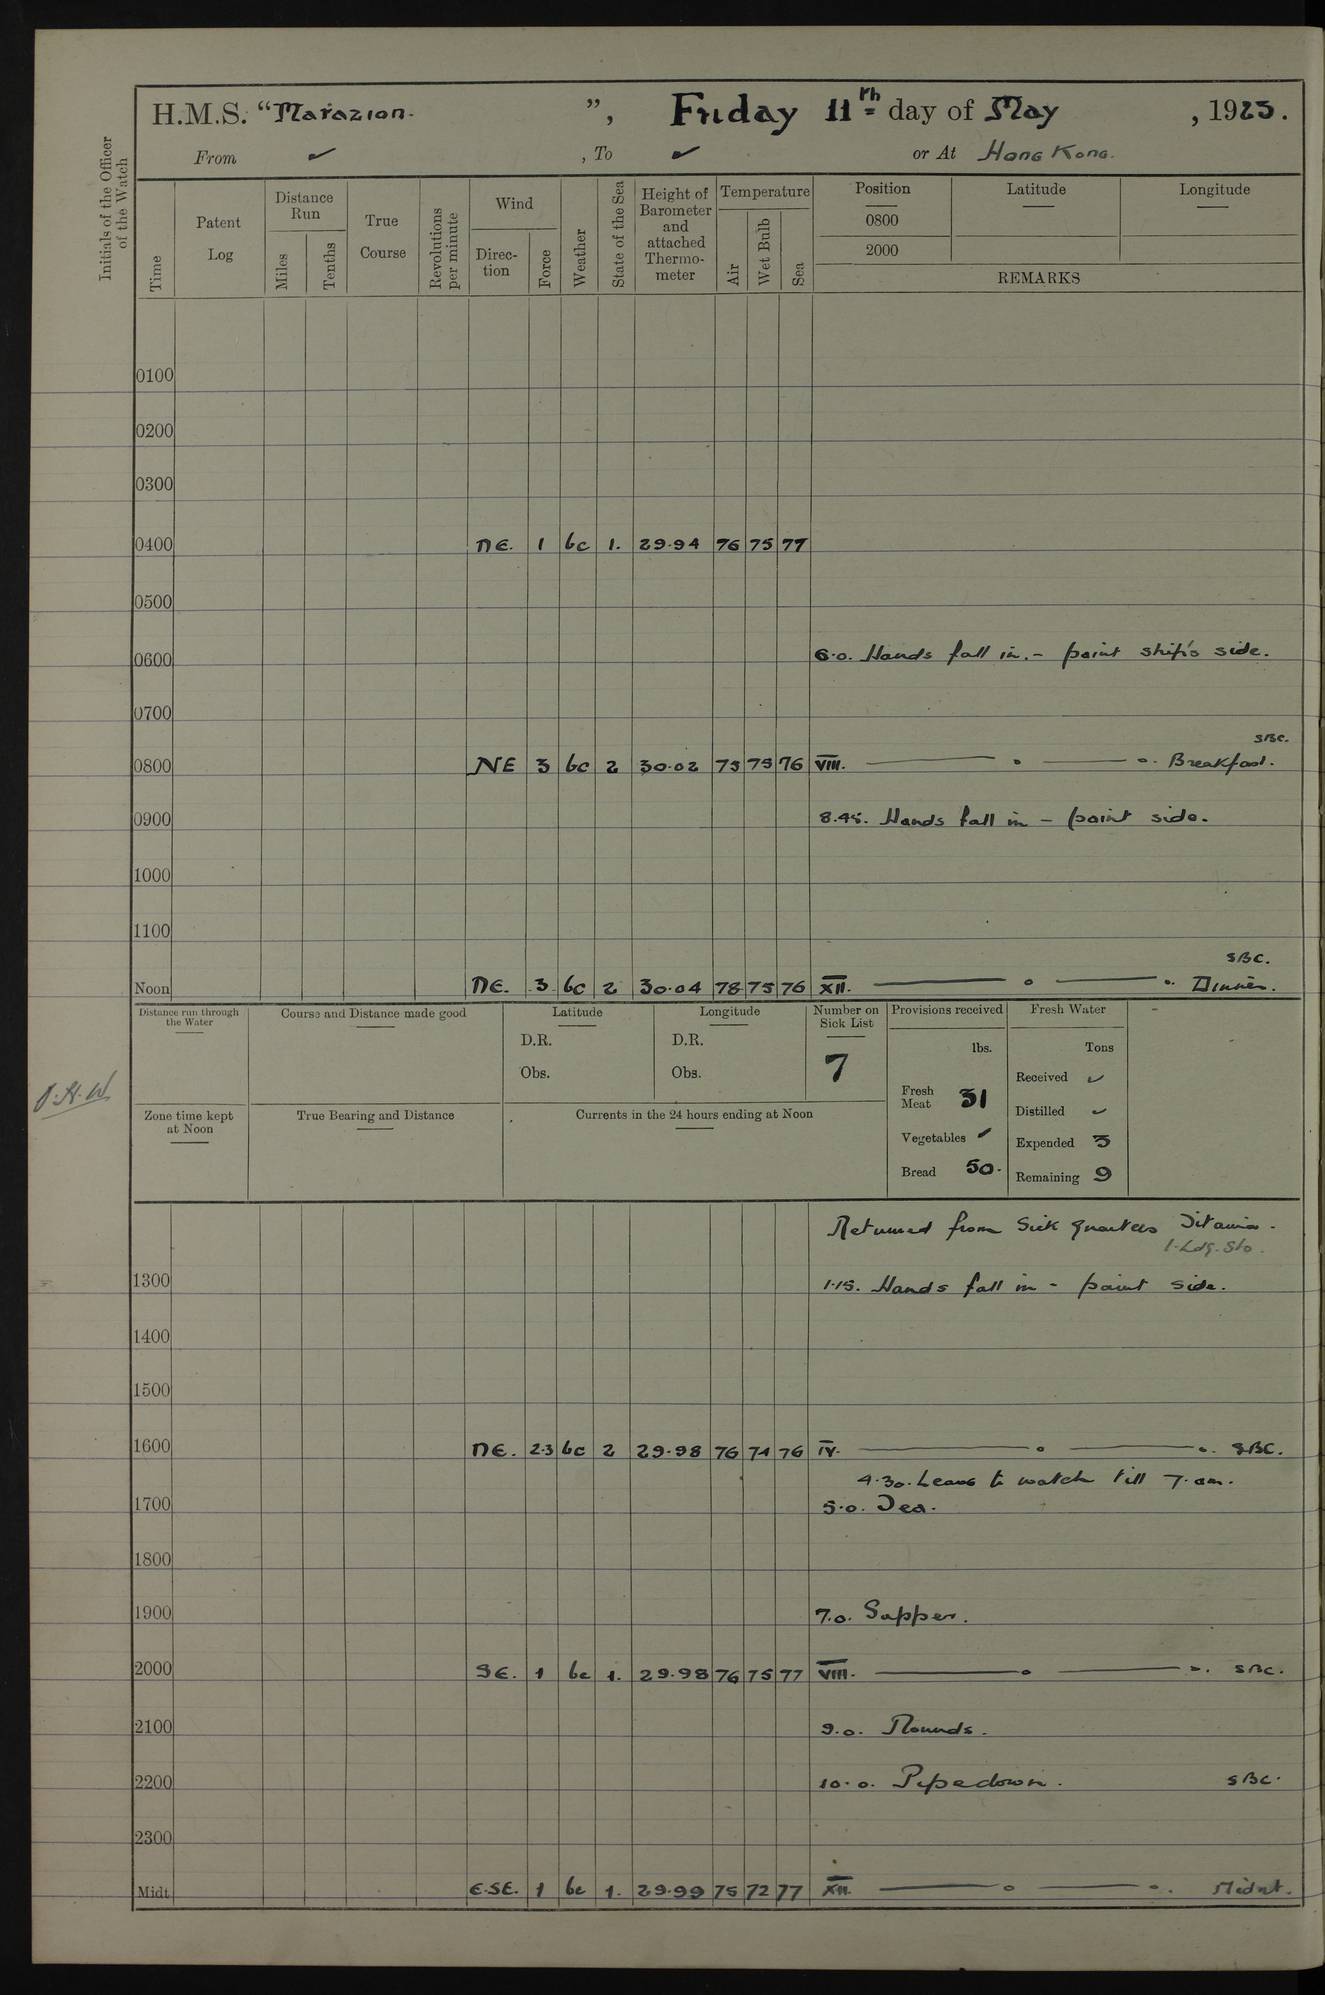 H.M.S. "Marazion.", Friday 11th day of May, 1923.
From ✓, To ✓ or At Hong Kong.
Initials of the Officer of the Watch
Time
Patent Log
Distance Run
Miles
Tenths
True Course
Revolutions per minute
Wind
Direction
Force
Weather
State of the Sea
Height of Barometer and attached Thermometer
Temperature
Air
Wet Bulb
Sea
Position
0800
2000
Latitude
Longitude
REMARKS
0100
0200
0300
0400 NE. 1 bc 1. 29.94 76 75 77
0500
0600 6.0. Hands fall in. - paint ship's side.
0700
SBC.
0800 NE 3 bc 2 30.02 75 75 76 VIII. Breakfast.
0900 8.45. Hands fall in - paint side.
1000
1100
SBC.
Noon NE. 3 bc 2 30.04 78 75 76 XII. Dinner.
Distance run through the Water
Course and Distance made good
Latitude
D.R.
Obs.
Longitude
D.R.
Obs.
Number on Sick List
7
Provisions received
lbs.
Fresh Meat 31
Vegetables ✓
Bread 50.
Fresh Water
Tons
Received ✓
Distilled ✓
Expended 3
Remaining 9
J.H.W
Zone time kept at Noon
True Bearing and Distance
Currents in the 24 hours ending at Noon
Returned from Sick Quarters
1. Ldg. Sto.
1300 1.15. Hands fall in - paint side.
1400
1500
1600 NE. 2.3 bc 2 29.98 76 74 76 IV. SBC.
4.30. Leave to watch till 7. am.
1700 5.0. Tea.
1800
1900 7.0. Supper.
2000 SE. 1 bc 1. 29.98 76 75 77 VIII. SBC.
2100 9.0. Rounds.
2200 10.0. Pipe down. SBC.
2300
Midt. E.SE. 1 bc 1. 29.99 75 72 77 XII. Midnt.